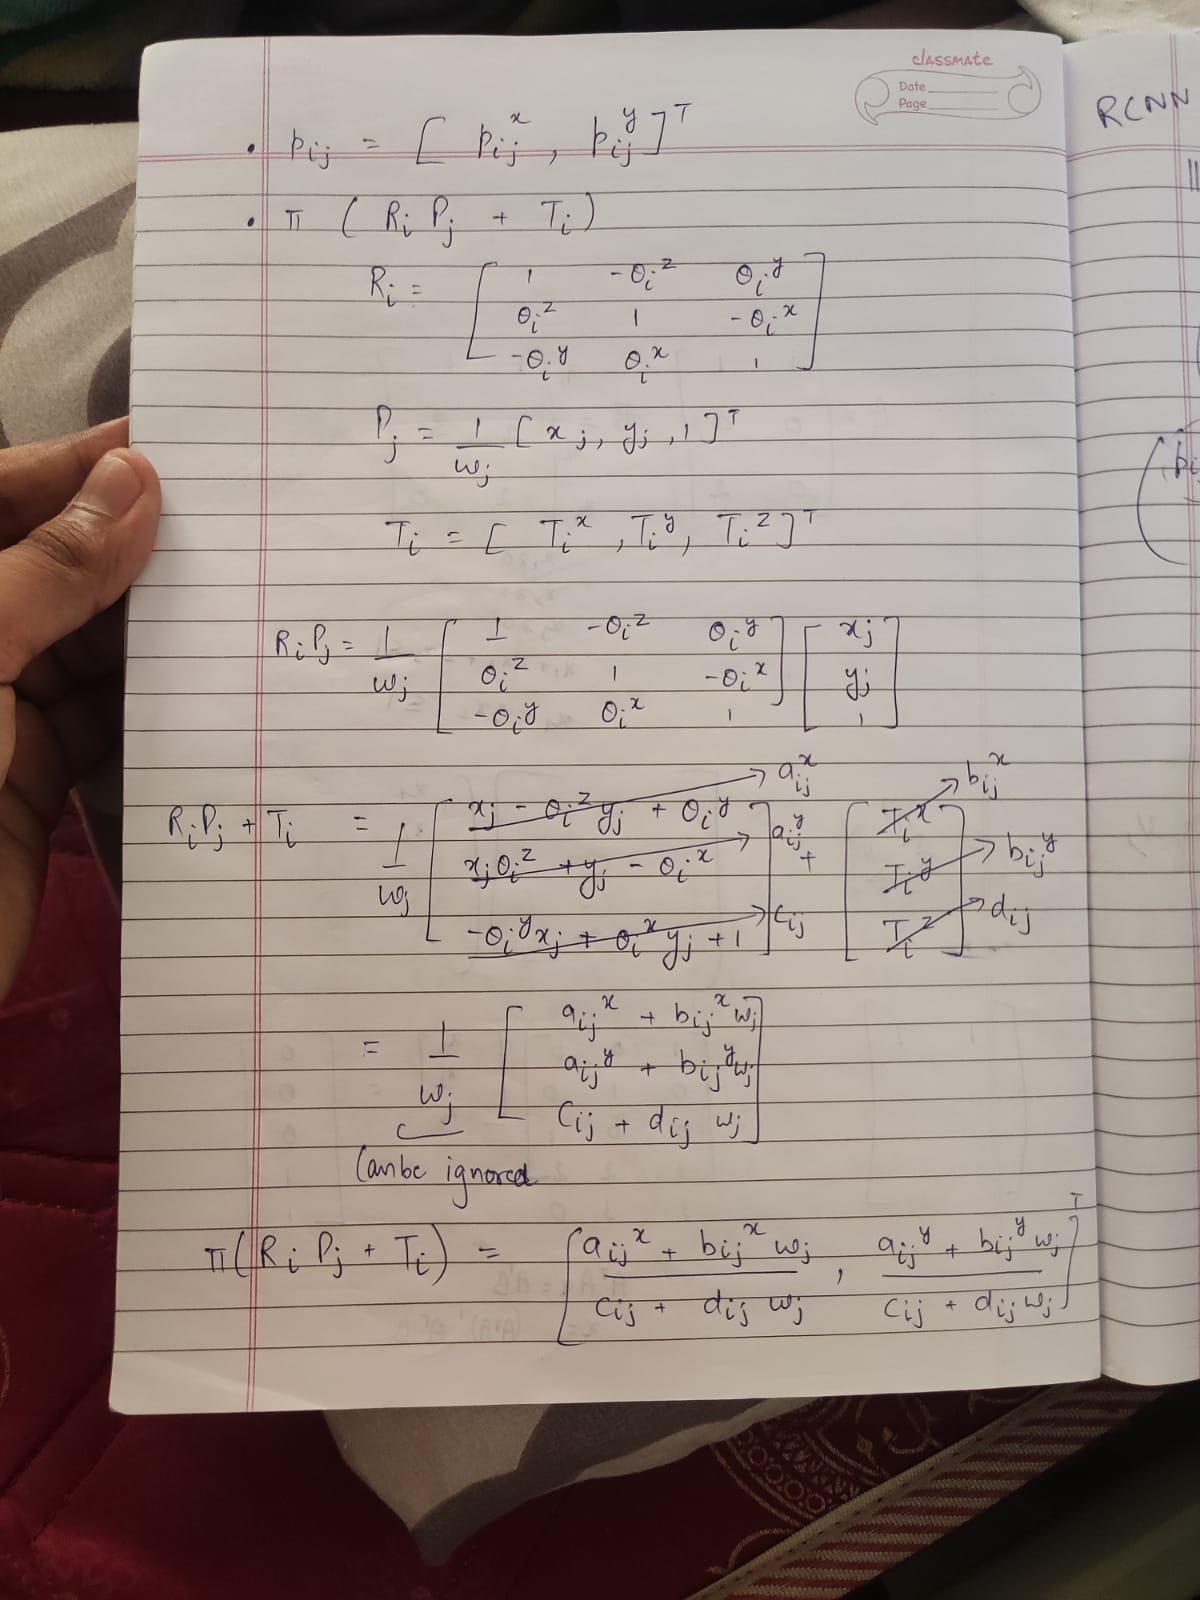 classmate
Date
Page
• p_ij = [ p_ij^x , p_ij^y ]^T
• π ( R_i P_j + T_i )
R_i = [ 1 -θ_i^z θ_i^y
θ_i^z 1 -θ_i^x
-θ_i^y θ_i^x 1 ]
P_j = 1/w_j [ x_j, y_j, 1 ]^T
T_i = [ T_i^x, T_i^y, T_i^z ]^T
R_i P_j = 1/w_j [ 1 -θ_i^z θ_i^y ] [ x_j
θ_i^z 1 -θ_i^x y_j
-θ_i^y θ_i^x 1 1 ]
R_i P_j + T_i = 1/w_j [ x_j - θ_i^z y_j + θ_i^y → a_ij^x + [ T_i^x → b_ij^x
x_j θ_i^z + y_j - θ_i^x → a_ij^y T_i^y → b_ij^y
-θ_i^y x_j + θ_i^x y_j + 1 ] → c_ij T_i^z ] → d_ij
= 1/w_j [ a_ij^x + b_ij^x w_j
a_ij^y + b_ij^y w_j
c_ij + d_ij w_j ]
Can be ignored
π( R_i P_j + T_i ) = [ (a_ij^x + b_ij^x w_j)/(c_ij + d_ij w_j) , (a_ij^y + b_ij^y w_j)/(c_ij + d_ij w_j) ]^T
RCNN